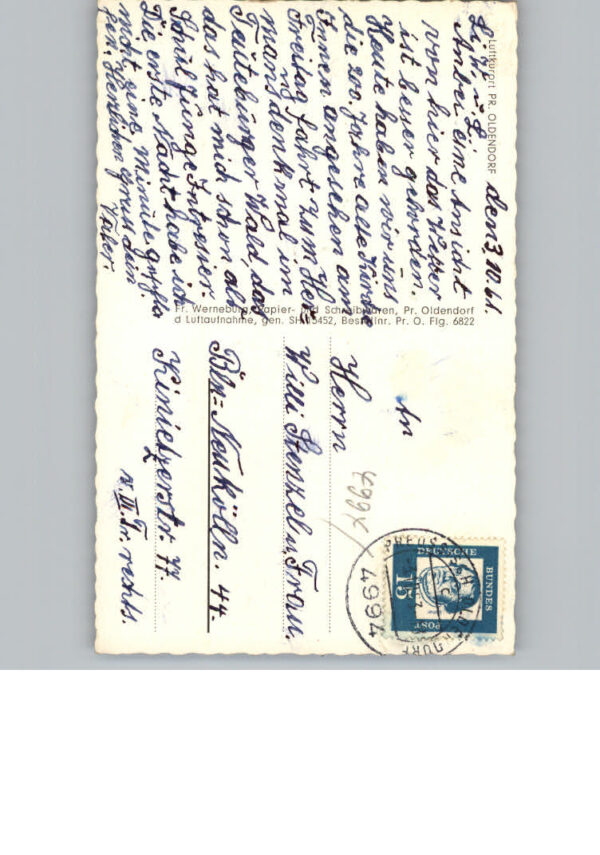 Luftkurort PR. OLDENDORF
den 3.10.61.
Anbei eine Ansicht
von hier das Wetter
ist besser geworden.
Heute haben wir uns
die 200 Jahre alte Kirche
Innen angesehen am
Freitag fahrt zum Her
mansdenkmal im
Teuteburger Wald, das
das hat mich schon als
Schuljunge Intressier.
Die erste Nacht habe ich
nicht eine Minute
Herzlichen Gruß Dein
Vater.
Fr. Werneburg, Papier- und Schreibwaren, Pr. Oldendorf
d Luftaufnahme, gen. SH 15452, Bestellnr. Pr. O. Flg. 6822
An
Herrn
Willi Stenzel u, Frau.
Bln=Neukölln. 44.
Kinietzerstr. 77.
v. III Tr. rechts.
4994
DEUTSCHE
BUNDES
POST
15